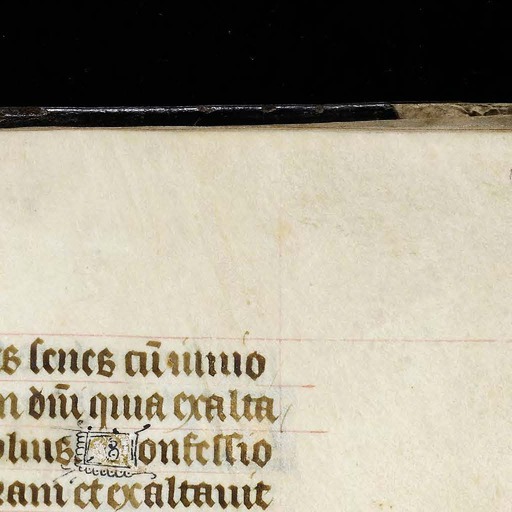 s senes cū iunio
n dm̄ quia exalta
olius Confessio
ram et exaltauit